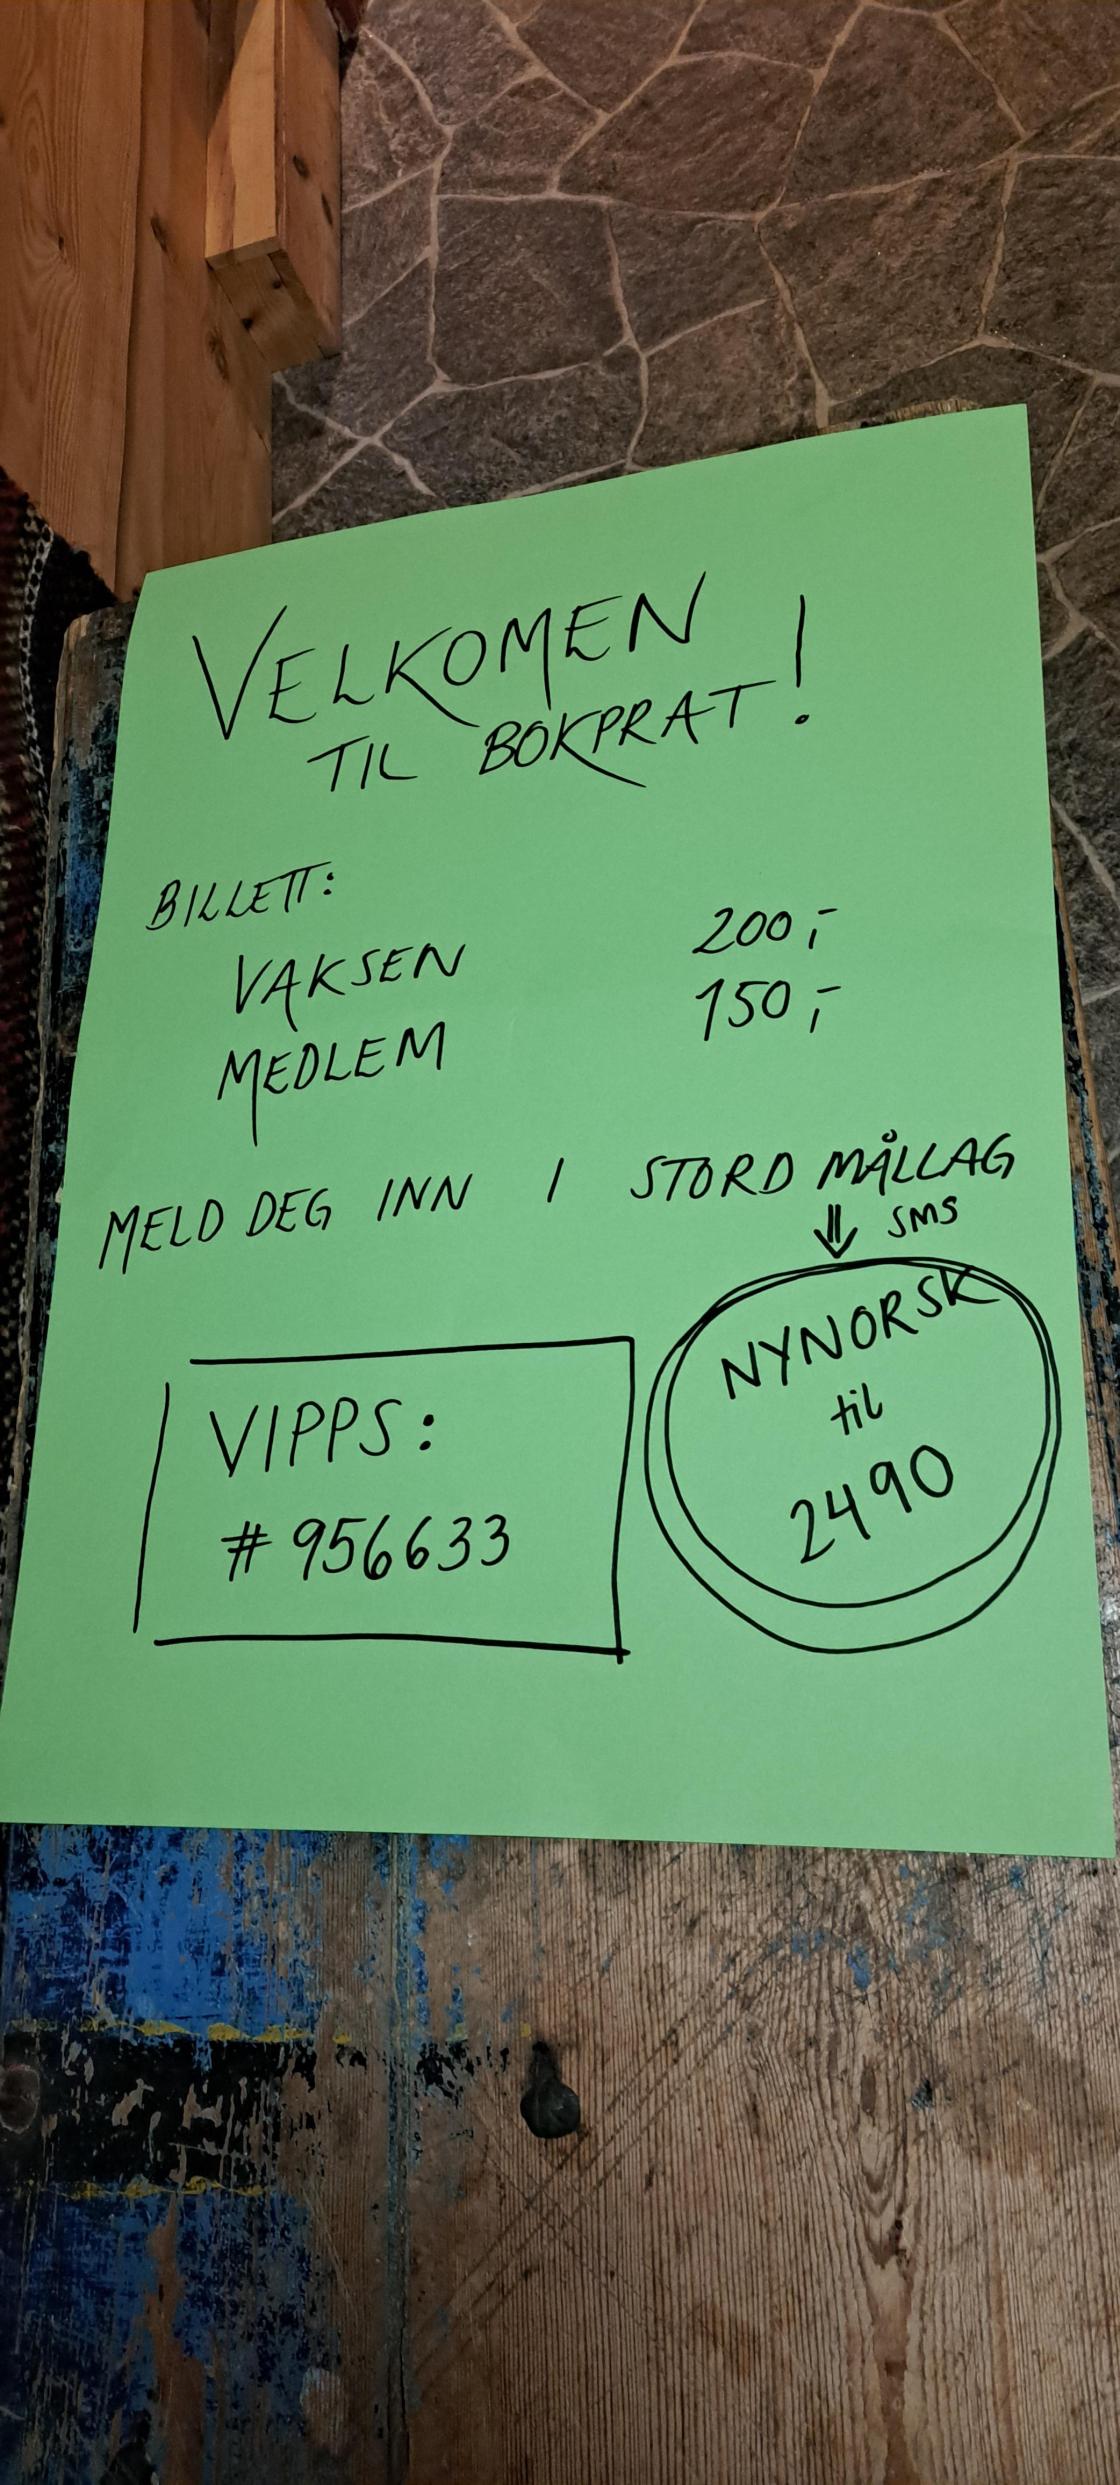 VELKOMEN
TIL BOKPRAT!
BILLETT:
VAKSEN 200,-
MEDLEM 150,-
MELD DEG INN I STORD MÅLLAG
⇓ SMS
NYNORSK
til
2490
VIPPS:
# 956633